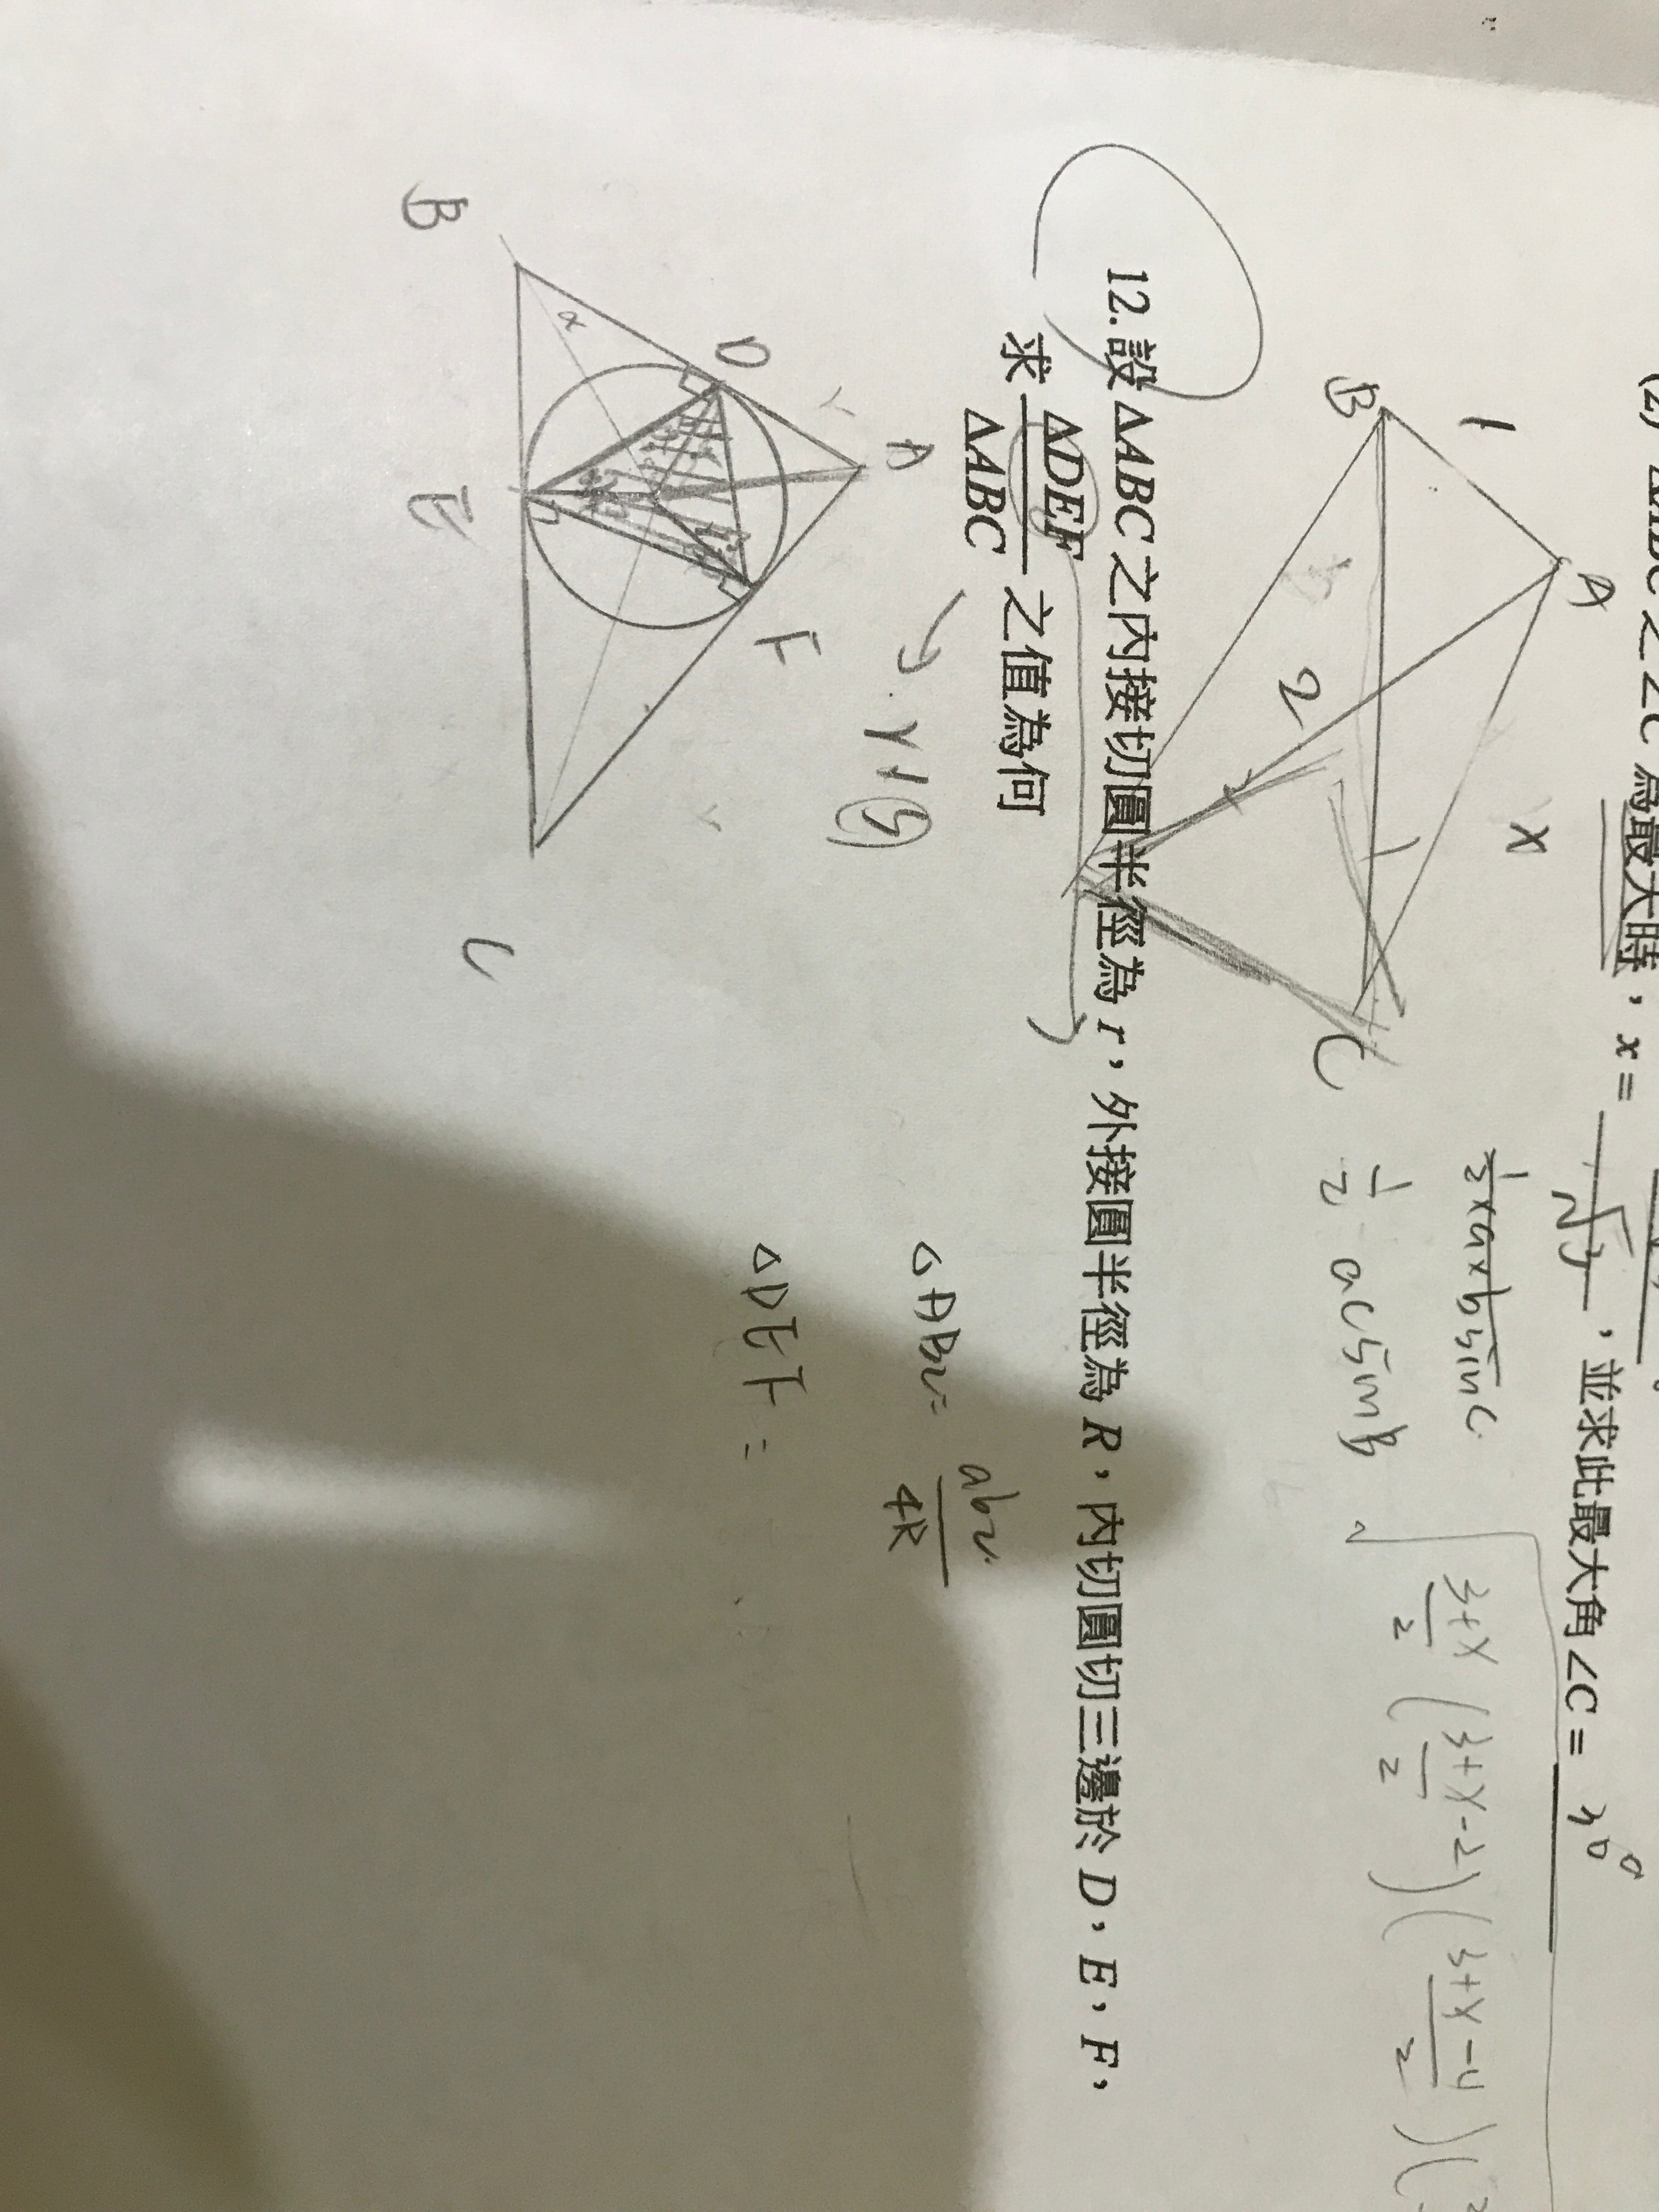 (2) △ABC 之∠C 為最大時，x = √3，並求此最大角∠C = 30°
A
1
x
B
2
C
1/2×a×b sin C
1/2 ac sin B
√ 3+x/2 (3+x/2 -2)(3+x/2
12. 設△ABC 之內接切圓半徑為 r，外接圓半徑為 R，內切圓切三邊於 D，E，F，
求 △DEF/△ABC 之值為何
r
A
D
F
α
B
E
C
△ABC = abc/4R
△DEF =